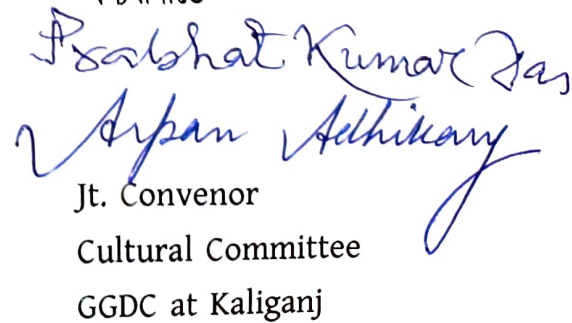 Prabhat Kumar Das
Arpan Adhikary
Jt. Convenor
Cultural Committee
GGDC at Kaliganj